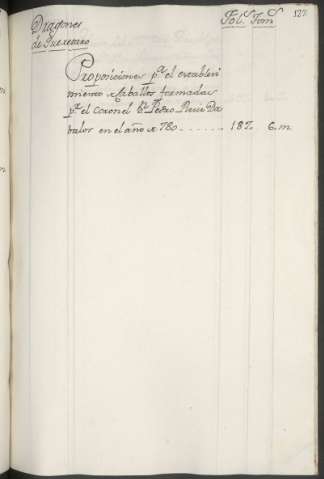 Dragones
de Queretaro
Fol.s Tom.s
127
Proposiciones p.a el estableci
miento de Caballos formadas
p.r el coronel D.n Pedro Ruiz Da
balos en el año de 780 . . . . . . . 187. 6.m